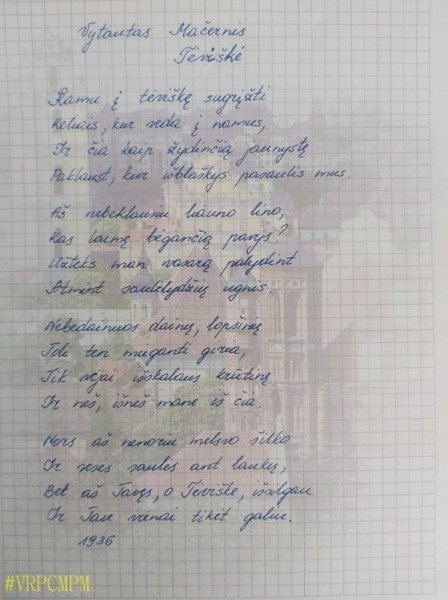 Vytautas Mačernis
Tėviškė
Ramu į tėviškę sugrįžti
Keliais, kur veda į namus,
Ir čia kaip žydinčią jaunystę
Paklaust, kur išblaškys pasaulis mus.
Aš nebeklausiu liauno lino,
Kas laimę bėgančią pavys?
Užteks man vasarą palydint
Atmint saulėlydžių ugnis.
Nebedainuos dainų, lopšinių
Toli ten mūganti giria,
Tik vėjai išskalaus krūtinę
Ir neš, išneš mane iš čia.
Nors aš nenoriu melsvo šilko
Ir sesės saulės ant laukų,
Bet aš Tavęs, o Tėviške, išsilgau
Ir Tau vienai tikėt galiu.
1936
#VRPCMPM